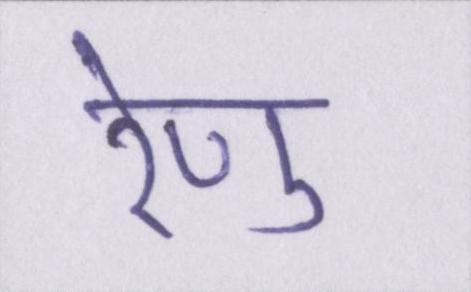 रेणु